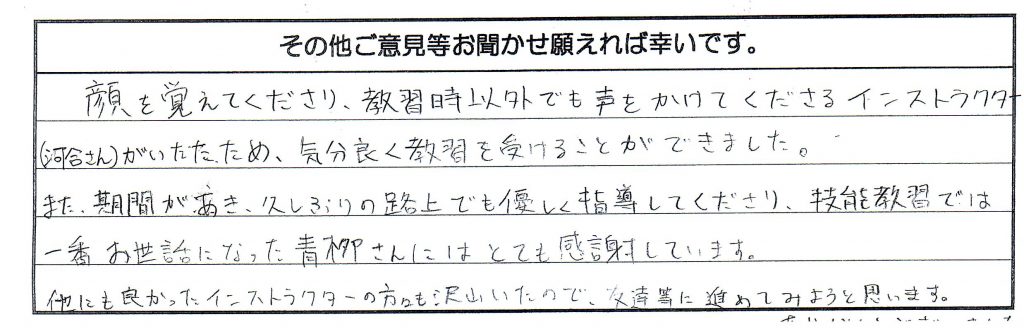 その他ご意見等お聞かせ願えれば幸いです。
顔を覚えてくださり、教習時以外でも声をかけてくださるインストラクター
(河合さん)がいたため、気分良く教習を受けることができました。
また、期間が空き、久しぶりの路上でも優しく指導してくださり、技能教習では
一番お世話になった青柳さんにはとても感謝しています。
他にも良かったインストラクターの方々も沢山いたので、友達等に進めてみようと思います。